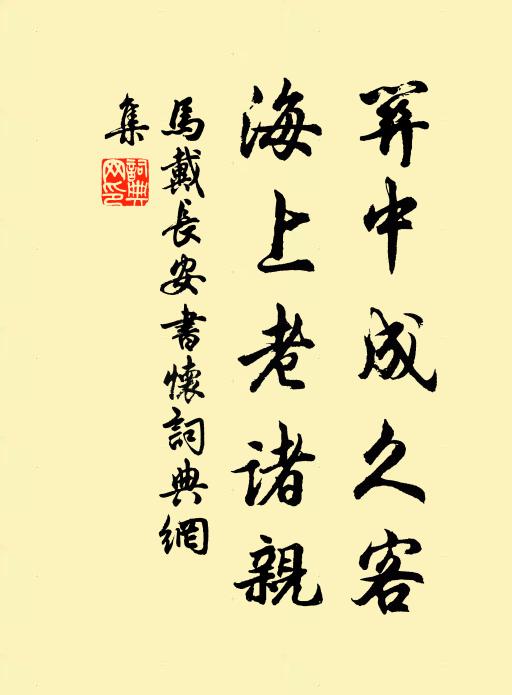 关中成久客
海上老诸親
馬戴長安書懷詞典網
集
詞典
网印